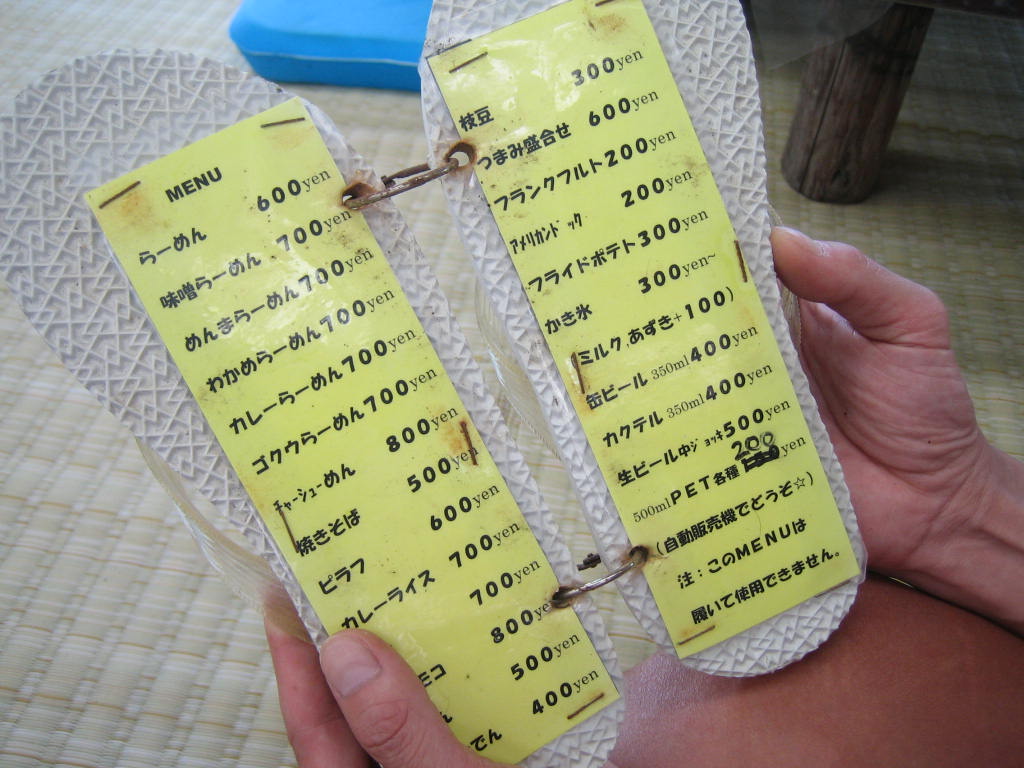 MENU
らーめん 600yen
味噌らーめん 700yen
めんまらーめん700yen
わかめらーめん700yen
カレーらーめん700yen
ゴクウらーめん700yen
チャーシューめん 800yen
焼きそば 500yen
ピラフ 600yen
カレーライス 700yen
700yen
モコ 800ye
ん 500yen
でん 400yen
枝豆 300yen
つまみ盛合せ 600yen
フランクフルト200yen
アメリカンドック 200yen
フライドポテト300yen
かき氷 300yen~
ミルク,あずき+100)
缶ビール 350ml400yen
カクテル 350ml400yen
生ビール中ジョッキ500yen
500mlPET各種 200yen
(自動販売機でどうぞ☆)
注:このMENUは
履いて使用できません。